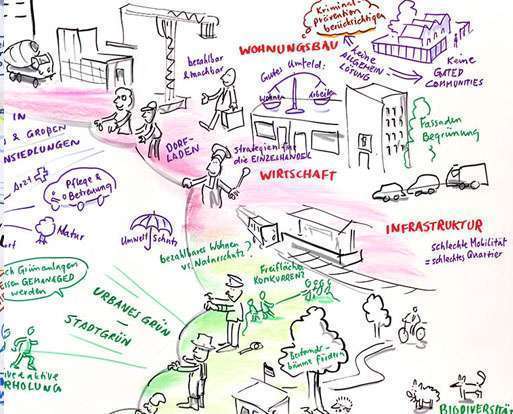 Kriminal-
prävention
berücksichtigen
WOHNUNGSBAU
bezahlbar
& machbar
keine
ALLGEMEIN-
LÖSUNG
Keine
GATED
COMMUNITIES
Gutes Umfeld:
Wohnen
Arbeiten
IN
& GROßEN
NSIEDLUNGEN
DORF-
LADEN
Strategien für
die EINZELHANDEL
WIRTSCHAFT
Fassaden
Begrünung
Arzt
Pflege &
Betreuung
Natur
Umwelt Schutz
INFRASTRUKTUR
schlechte Mobilität
= schlechtes Quartier
bezahlbares Wohnen
vs. Naturschutz?
ch Grünanlagen
ssen GEMANAGED
werden
URBANES GRÜN
—
STADTGRÜN
Freiflächen
KONKURRENZ
Bestands-
bäume fördern
RHOLUNG
BIODIVERSITÄ